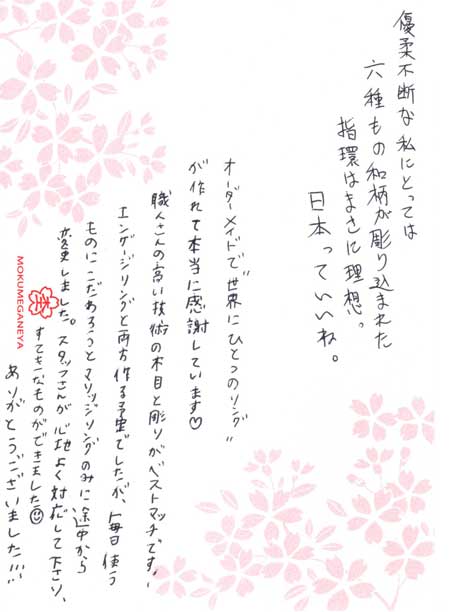 優柔不断な私にとっては
六種もの和柄が彫り込まれた
指環はまさに理想。
日本っていいね。
オーダーメイドで"世界にひとつのリング"
が作れて本当に感謝しています♡
職人さんの高い技術の木目と彫りがベストマッチです。
エンゲージリングと両方作る予定でしたが、毎日使う
ものにこだわろうとマリッジリングのみに途中から
変更しました。スタッフさんが心地よく対応して下さり、
すてきなものができました☺
ありがとうございました!!!
杢
MOKUMEGANEYA